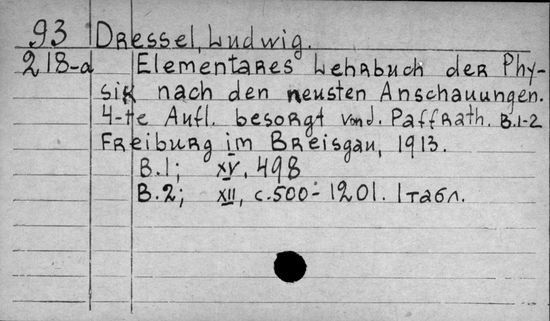 93 Dressel, Ludwig.
218-a Elementares Lehrbuch der Phy-
sik nach den neusten Anschauungen.
4-te Aufl. besorgt von J. Paffrath. B.1-2
Freiburg im Breisgau, 1913.
B.1; XV, 498
B.2; XII, c.500-1201. 1 табл.